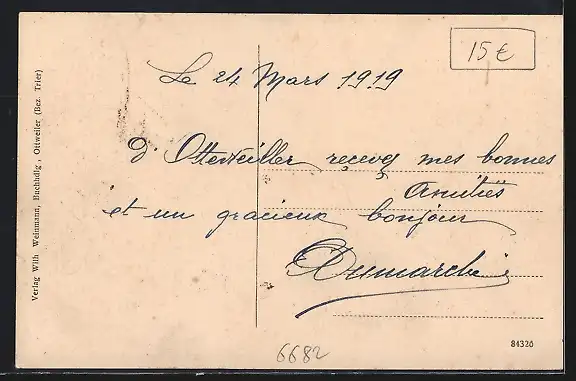 15 €
Le 24 Mars 1919
d'Otterveiller recevez mes bonnes
Amitiés
et un gracieux bonjour
Dumarché
Verlag Wilh Weinmann, Buchhdlg, Ottweiler (Bez. Trier)
84326
6682